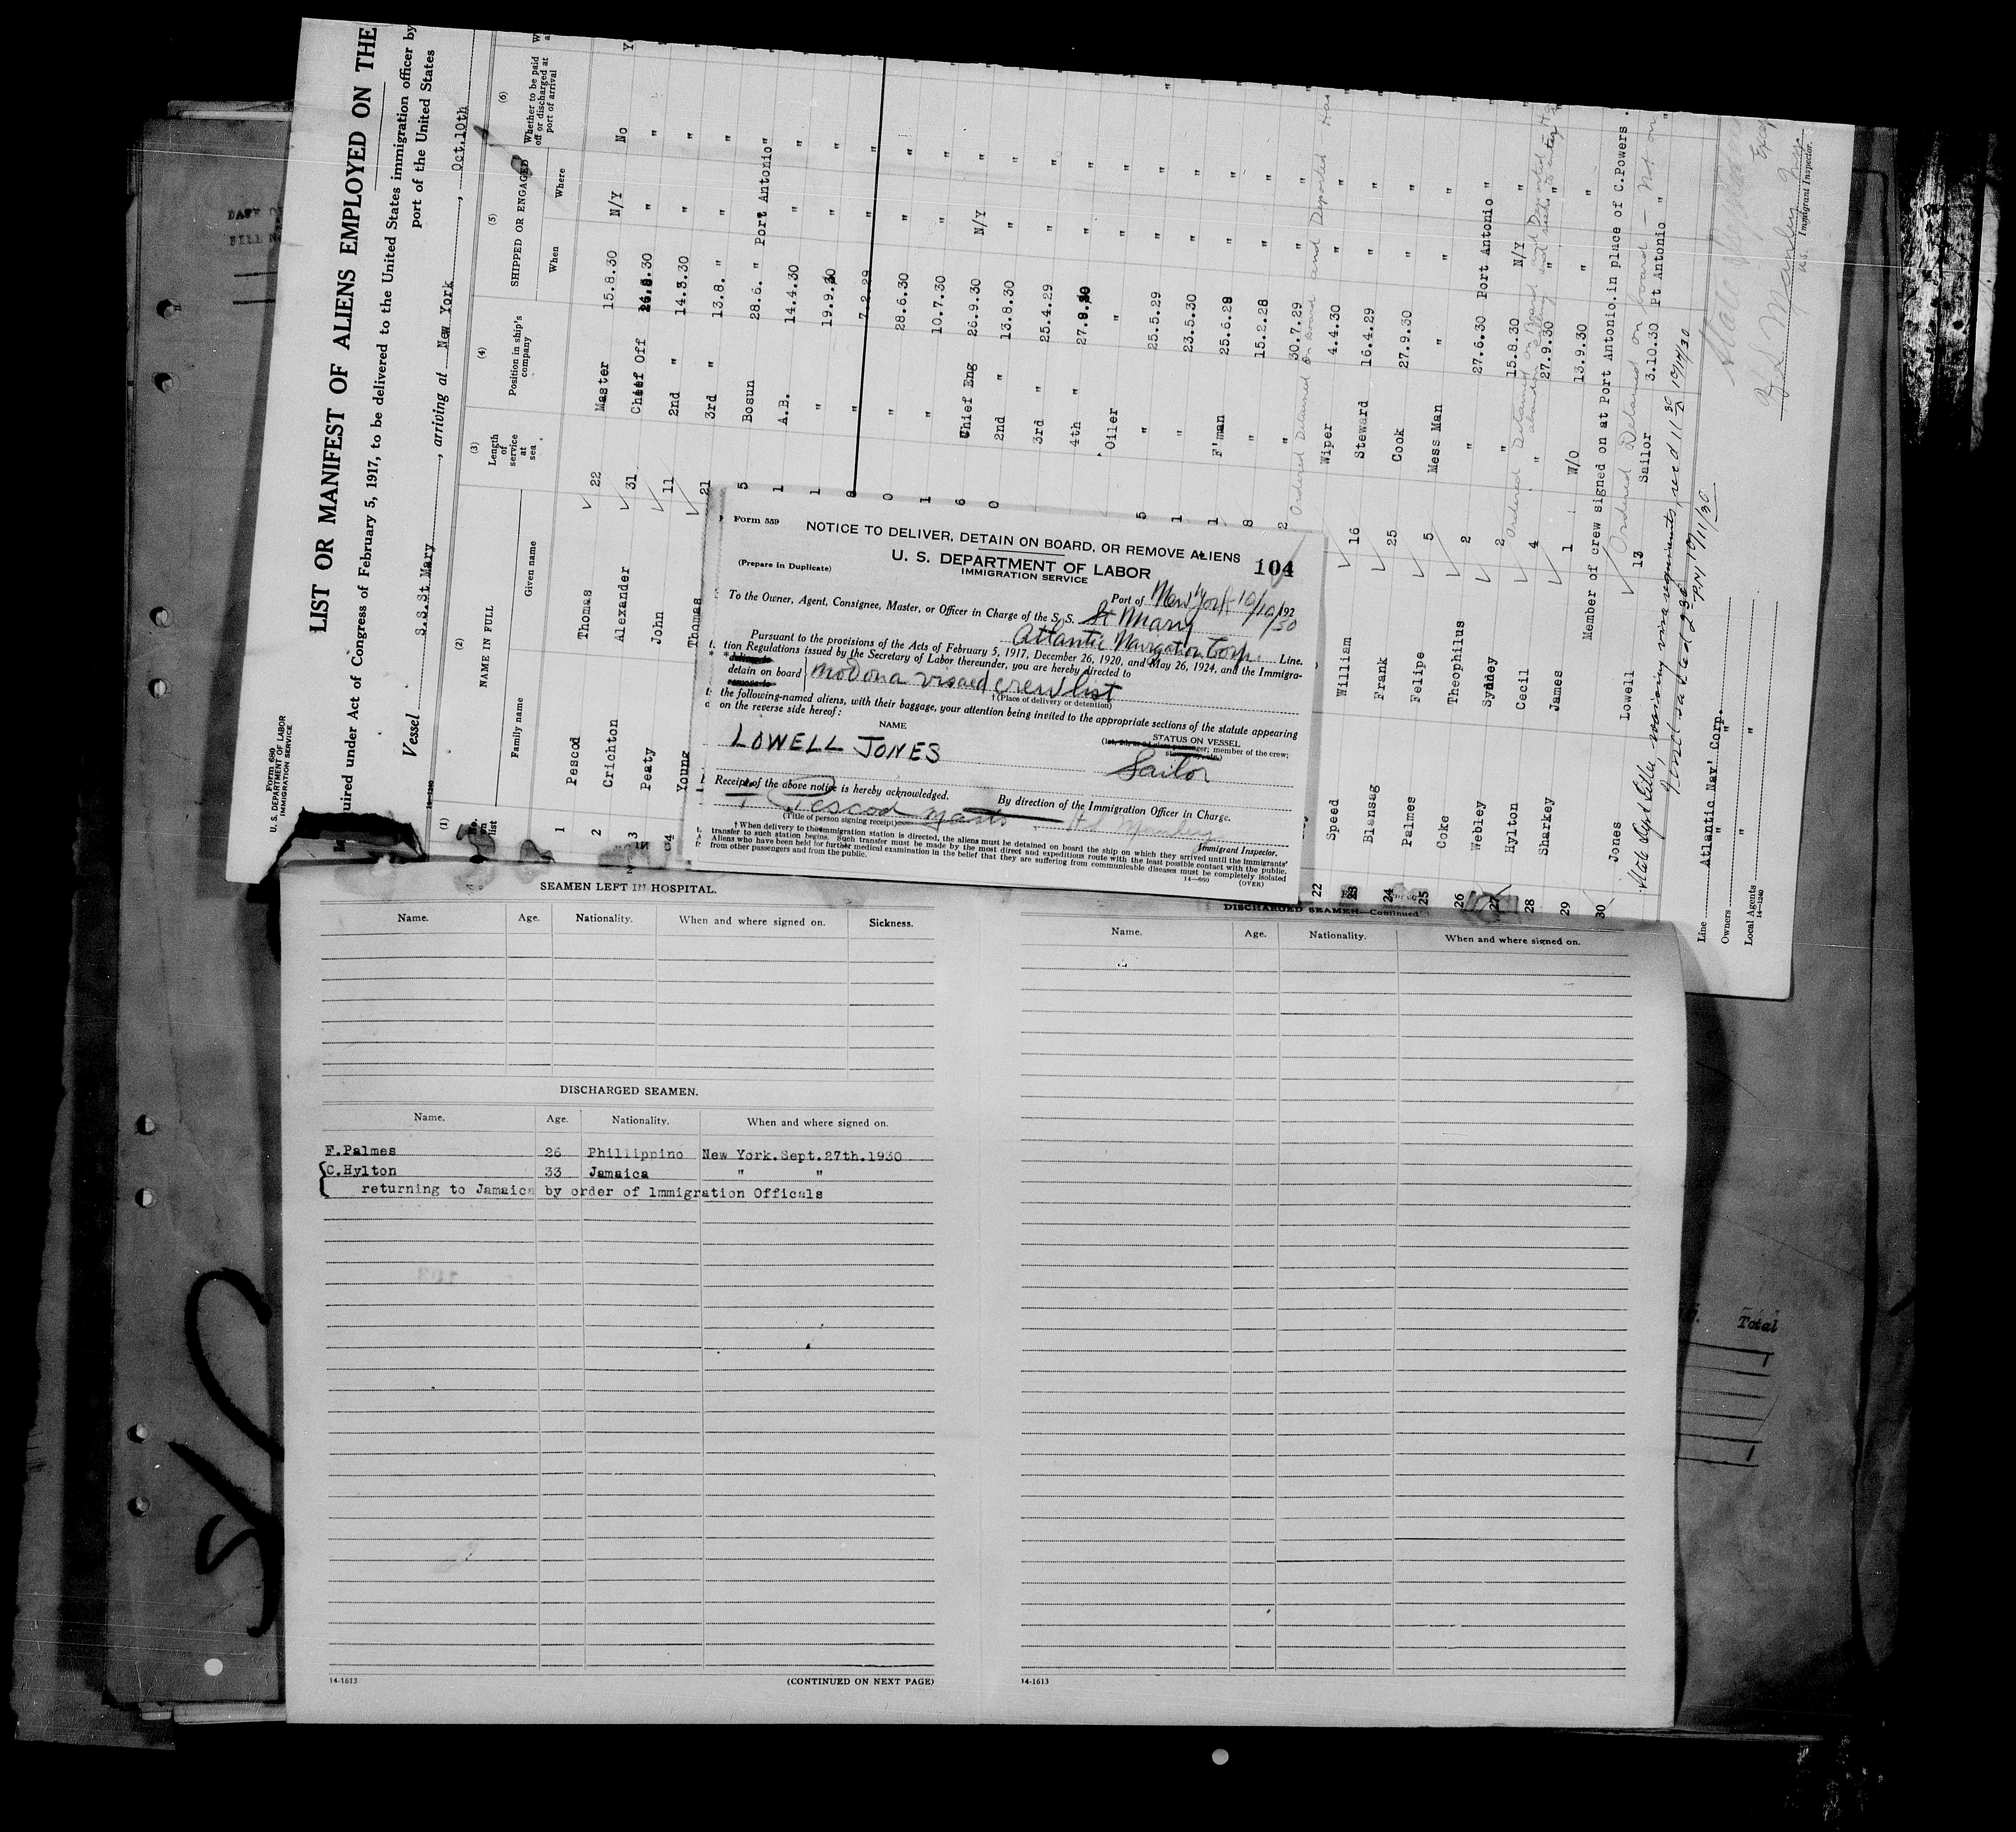 Form 680
U. S. DEPARTMENT OF LABOR
IMMIGRATION SERVICE
LIST OR MANIFEST OF ALIENS EMPLOYED ON THE
uired under Act of Congress of February 5, 1917, to be delivered to the United States immigration officer by
port of the United States
Vessel S.S.St Mary, arriving at New York, Oct.10th
14-1240
(1) (2) (3) (4) (5) (6)
No. on list
NAME IN FULL
Family name Given name
Length of service at sea
Position in ship's company
SHIPPED OR ENGAGED
When Where
Whether to be paid off or discharged at port of arrival
1 Pescod Thomas 22 Master 15.8.30 N/Y No
2 Crichton Alexander 31 Chief Off 26.8.30 " "
3 Peaty John 11 2nd " 14.3.30 " "
4 Young Thomas 21 3rd " 13.8. " " "
5 Bosun 28.6. " Port Antonio "
1 A.B. 14.4.30 " "
1 " 19.9.30 " "
8 " 7.2.29 " "
0 " 28.6.30 " "
1 " 10.7.30 " "
6 Chief Eng 26.9.30 N/Y "
0 2nd " 13.8.30 " "
3rd " 25.4.29 " "
4th " 27.8.30 " "
Oiler " " "
5 " 25.5.29 " "
1 " 23.5.30 " "
1 F'man 25.6.28 " "
8 " 15.2.28 " "
2 " 30.7.29 " "
Ordered Detained on Board and Deported Has
22 Speed William Wiper 4.4.30 " "
23 Blansag Frank 16 Steward 16.4.29 " "
24 Palmes Felipe 25 Cook 27.9.30 " "
25 Coke Theophilus 5 Mess Man " " "
26 Webley Sydney 2 " 27.6.30 Port Antonio "
27 Hylton Cecil 2 " 15.8.30 N/Y "
Ordered Detained on Board and Deported
28 Sharkey James 4 " 27.9.30 " "
29 1 W/O 13.9.30 " "
Member of crew signed on at Port Antonio.in place of C.Powers .
Ordered Detained on board - Not on
30 Jones Lowell 13 Sailor 3.10.30 Pt Antonio "
Line Atlantic Nav' Corp.
Owners " "
Local Agents " "
14-1240
U.S. Immigrant Inspector.
Form 559
NOTICE TO DELIVER, DETAIN ON BOARD, OR REMOVE ALIENS
U. S. DEPARTMENT OF LABOR
IMMIGRATION SERVICE
104
(Prepare in Duplicate)
Port of New York 10/10/30 192
To the Owner, Agent, Consignee, Master, or Officer in Charge of the S. S. St Mary
Atlantic Navigation Corp. Line.
Pursuant to the provisions of the Acts of February 5, 1917, December 26, 1920, and May 26, 1924, and the Immigra-
tion Regulations issued by the Secretary of Labor thereunder, you are hereby directed to
detain on board
remove to
not on a visaed crew list
† (Place of delivery or detention)
the following-named aliens, with their baggage, your attention being invited to the appropriate sections of the statute appearing
on the reverse side hereof:
NAME
STATUS ON VESSEL
member of the crew;
LOWELL JONES Sailor
Receipt of the above notice is hereby acknowledged.
By direction of the Immigration Officer in Charge.
T Pescod Master
(Title of person signing receipt)
Immigrant Inspector.
† When delivery to the immigration station is directed, the aliens must be detained on board the ship on which they arrived until the immigrants'
transfer to such station begins. Such transfer must be made by the most direct and expeditious route with the least possible contact with the public.
Aliens who have been held for further medical examination in the belief that they are suffering from communicable diseases must be completely isolated
from other passengers and from the public.
14-660
(OVER)
SEAMEN LEFT IN HOSPITAL.
Name. Age. Nationality. When and where signed on. Sickness.
DISCHARGED SEAMEN.
Name. Age. Nationality. When and where signed on.
F.Palmes 26 Phillippino New York.Sept.27th.1930
C.Hylton 33 Jamaica " "
returning to Jamaica by order of 1mmigration Officals
14-1613
(CONTINUED ON NEXT PAGE)
DISCHARGED SEAMEN—Continued
Name. Age. Nationality. When and where signed on.
14-1613
Total